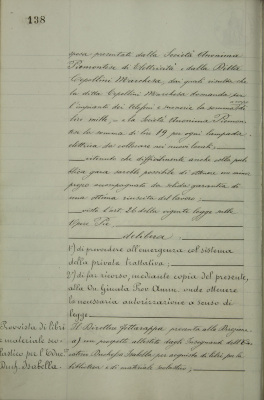 138
presentate dalla Società Anonima
Piemontese di Elettricità e dalla Ditta
Capellini Marchese, dai quali risulta che
la ditta Capellini Marchese domanda per
l'impianto dei telefoni e suonerie la somma di
lire mille, e la Società Anonima Piemon
tese la somma di lire 19 per ogni lampada
elettrica da collocare nei nuovi locali;
ritenuto che difficilmente anche colla pub
blica gara sarebbe possibile di ottenere un minor
prezzo accompagnato da solida garanzia di
una ottima riuscita del lavoro;
visto l'art. 26 della vigente legge sulle
Opere Pie
delibera
1°) di provvedere all'emergenza col sistema
della privata trattativa;
2°) di far ricorso, mediante copia del presente,
alla On. Giunta Prov. Amm. onde ottenere
la necessaria autorizzazione a senso di
legge.
Provvista di libri
e materiale sco-
lastico per l'Educ.
Duch. Isabella
Il Direttore presenta alla Direzione
a) un progetto allestito dagli Insegnanti dell'
Duchessa Isabella, per acquisto di libri per la
biblioteca e di materiale scolastico;